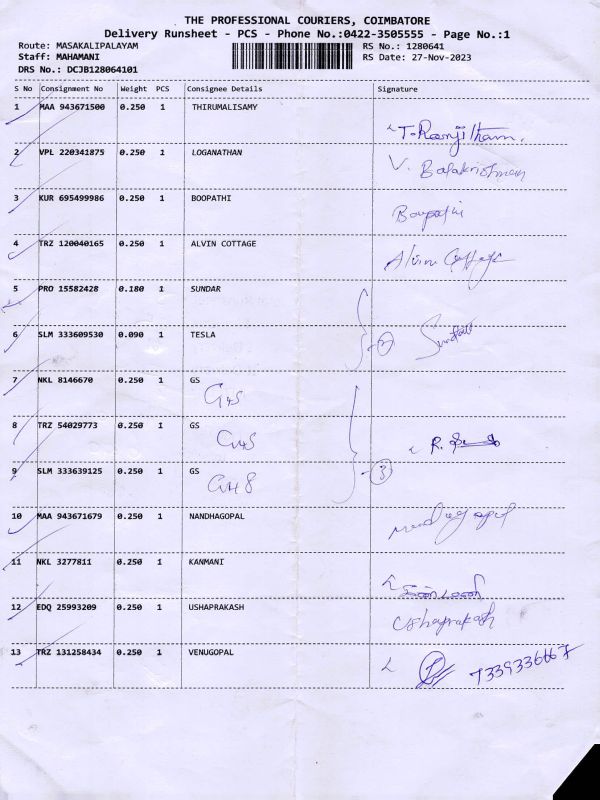 THE PROFESSIONAL COURIERS, COIMBATORE
Delivery Runsheet - PCS - Phone No.:0422-3505555 - Page No.:1
Route: MASAKALIPALAYAM RS No.: 1280641
Staff: MAHAMANI RS Date: 27-Nov-2023
DRS No.: DCJB128064101
S No Consignment No Weight PCS Consignee Details Signature
1 MAA 943671500 0.250 1 THIRUMALISAMY
T. Ranjitham.
2 VPL 220341875 0.250 1 LOGANATHAN
V. Balakrishnan
3 KUR 695499986 0.250 1 BOOPATHI
Boopathi
4 TRZ 120040165 0.250 1 ALVIN COTTAGE
Alvin Cottage
5 PRO 15582428 0.180 1 SUNDAR
6 SLM 333609530 0.090 1 TESLA
2
7 NKL 8146670 0.250 1 GS
G4S
8 TRZ 54029773 0.250 1 GS
G4S R.
9 SLM 333639125 0.250 1 GS
G4S 3
10 MAA 943671679 0.250 1 NANDHAGOPAL
nandhagopal
11 NKL 3277811 0.250 1 KANMANI
12 EDQ 25993209 0.250 1 USHAPRAKASH
Ushaprakash
13 TRZ 131258434 0.250 1 VENUGOPAL
7339336667